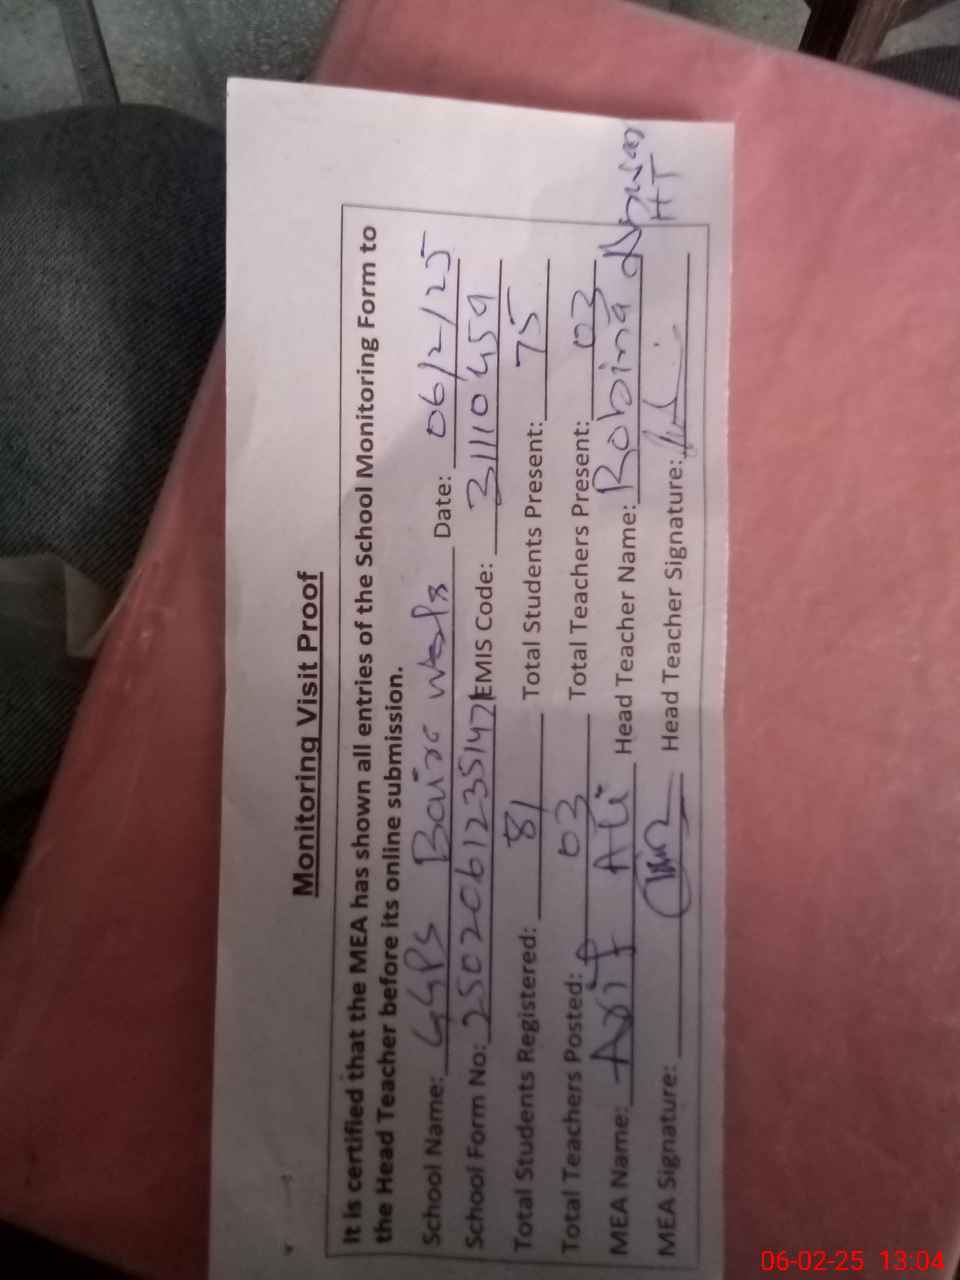 Monitoring Visit Proof
It is certified that the MEA has shown all entries of the School Monitoring Form to
the Head Teacher before its online submission.
School Name: GGPS Date: 06/2/25
School Form No: 25020612351471 EMIS Code: 31110459
Total Students Registered: 81 Total Students Present: 75
Total Teachers Posted: 03 Total Teachers Present: 03
MEA Name: Asif Ali Head Teacher Name: Robina
HT
MEA Signature: Head Teacher Signature:
06-02-25 13:04